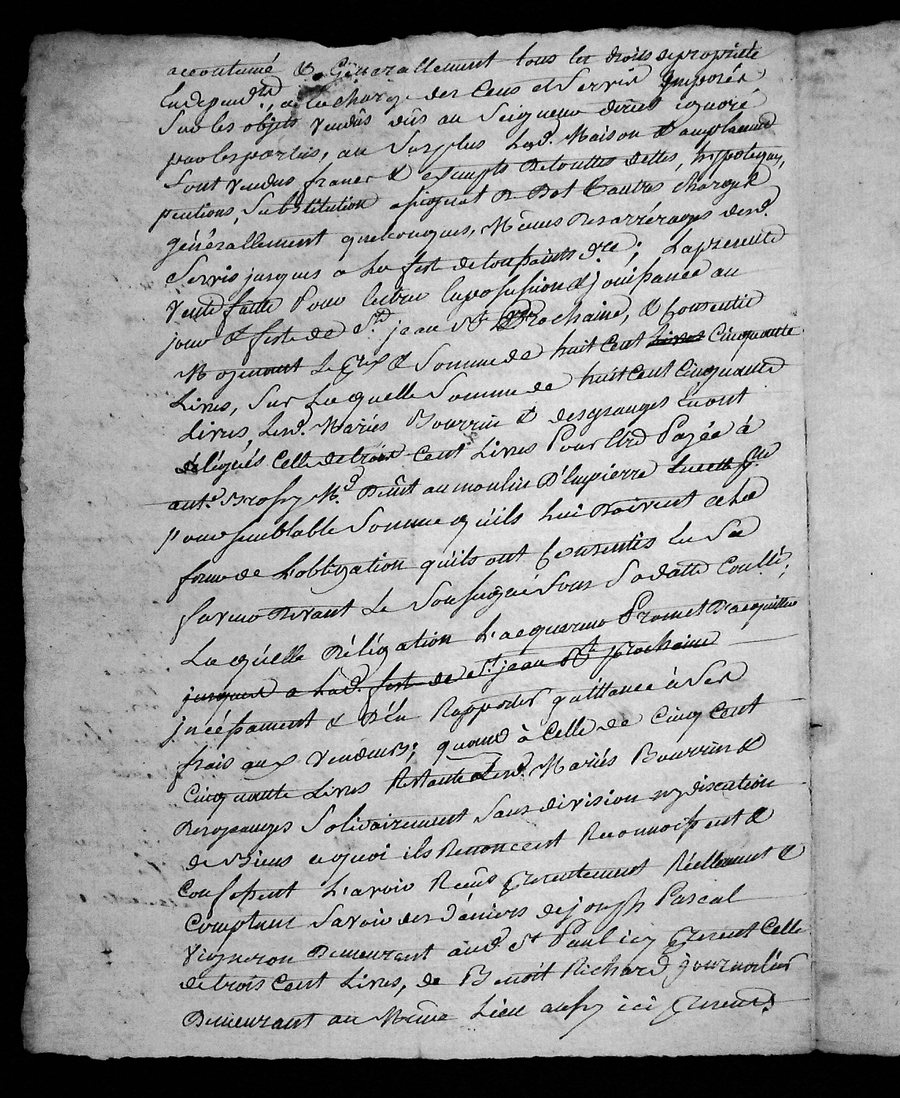 accoutumé & Généralement tous les droits de propriété
En dépend.te, a la charge des Cens et Servis Imposés
Sur les objets Vendus dûs au Seigneur direct ignoré
par les parties, au Surplus Lad. Maison & emplacement
Sont Vendus francs & exempts de touttes dettes, hypoteques,
pentions, Substitution dot & autres charges
générallement quelconques, Mêmes des arrérages desd.
Servis jusques a La fest de toussaints d.re ; La presente
Vente faitte Pour Entrer En possession & jouissance au
jour & feste de St. jean Bte. Prochaine, & Consentie
Moyennant Le Prix & Somme de huit Cent Livres Cinquante
Livres, Sur Laquelle Somme de huit Cent Cinquante
Livres, Lesd. Mariés Bourrin & desgranges En ont
délégués Celle de trois Cent Livres Pour Etre Payée à
ant.e Brossy M.d au moulin D'Empierre
pour semblable Somme qu'ils Lui Doivent a La
forme de L'obligation qu'ils ont Consentis En Sa
faveur Devant Le Soussigné Sous Sa datte Controllé ;
Laquelle Délégation L'acquereur Promet D'acquitter
jusques a Lad. fest de St. jean Bte. prochaine
incéssament & D'En Rapporter quittance à Ses
frais aux Vendeurs ; quand à Celle de Cinq Cent
Cinquante Livres Restante Lesd. Mariés Bourrin &
Desgranges Solidairement Sans division ny discution
de Biens a quoi ils Renoncent Reconnoissent &
Confessent L'avoir Reçûs Presentement Réellement &
Comptant Savoir des déniers de joseph Pascal
Vigneron Demeurant aud. St. Paul icy Present Celle
de trois Cent Livres, de Benoit Richard journalier
Demeurant au Même Lieu aussy ici Present